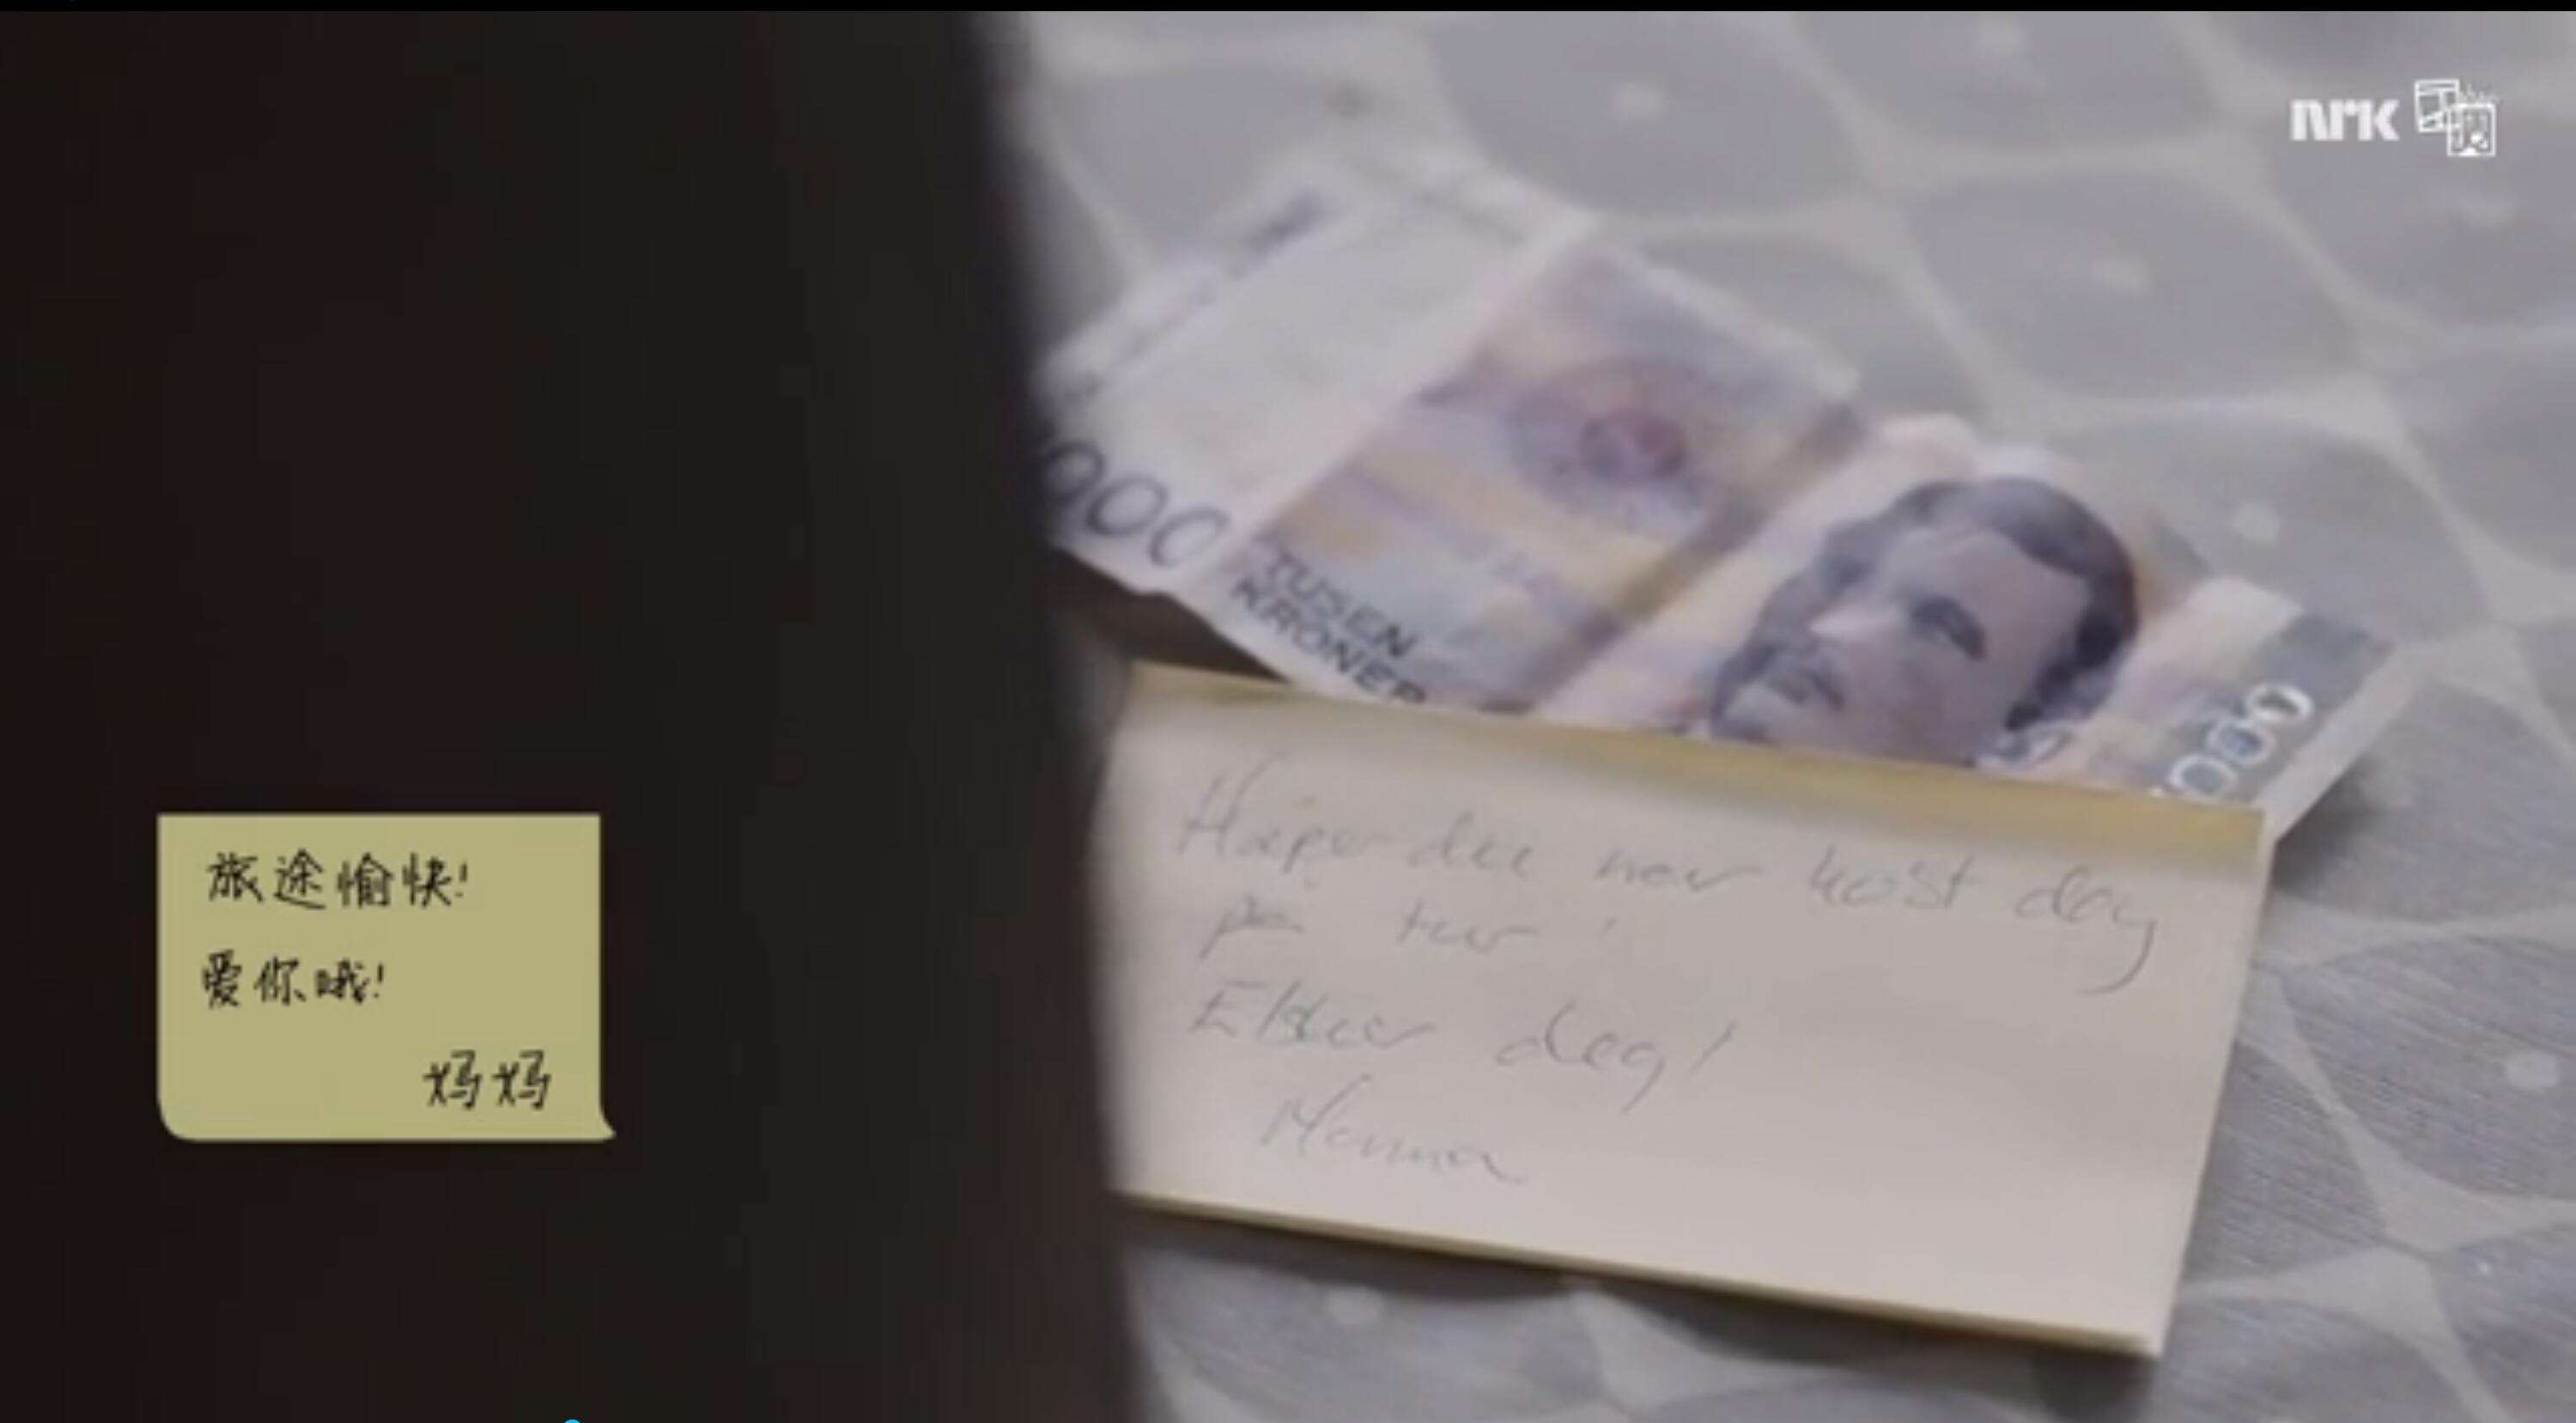 nrk
000
TUSEN
KRONER
1000
Håper du har kost deg
på tur!
Elsker deg!
Mamma
旅途愉快!
爱你哦!
妈妈